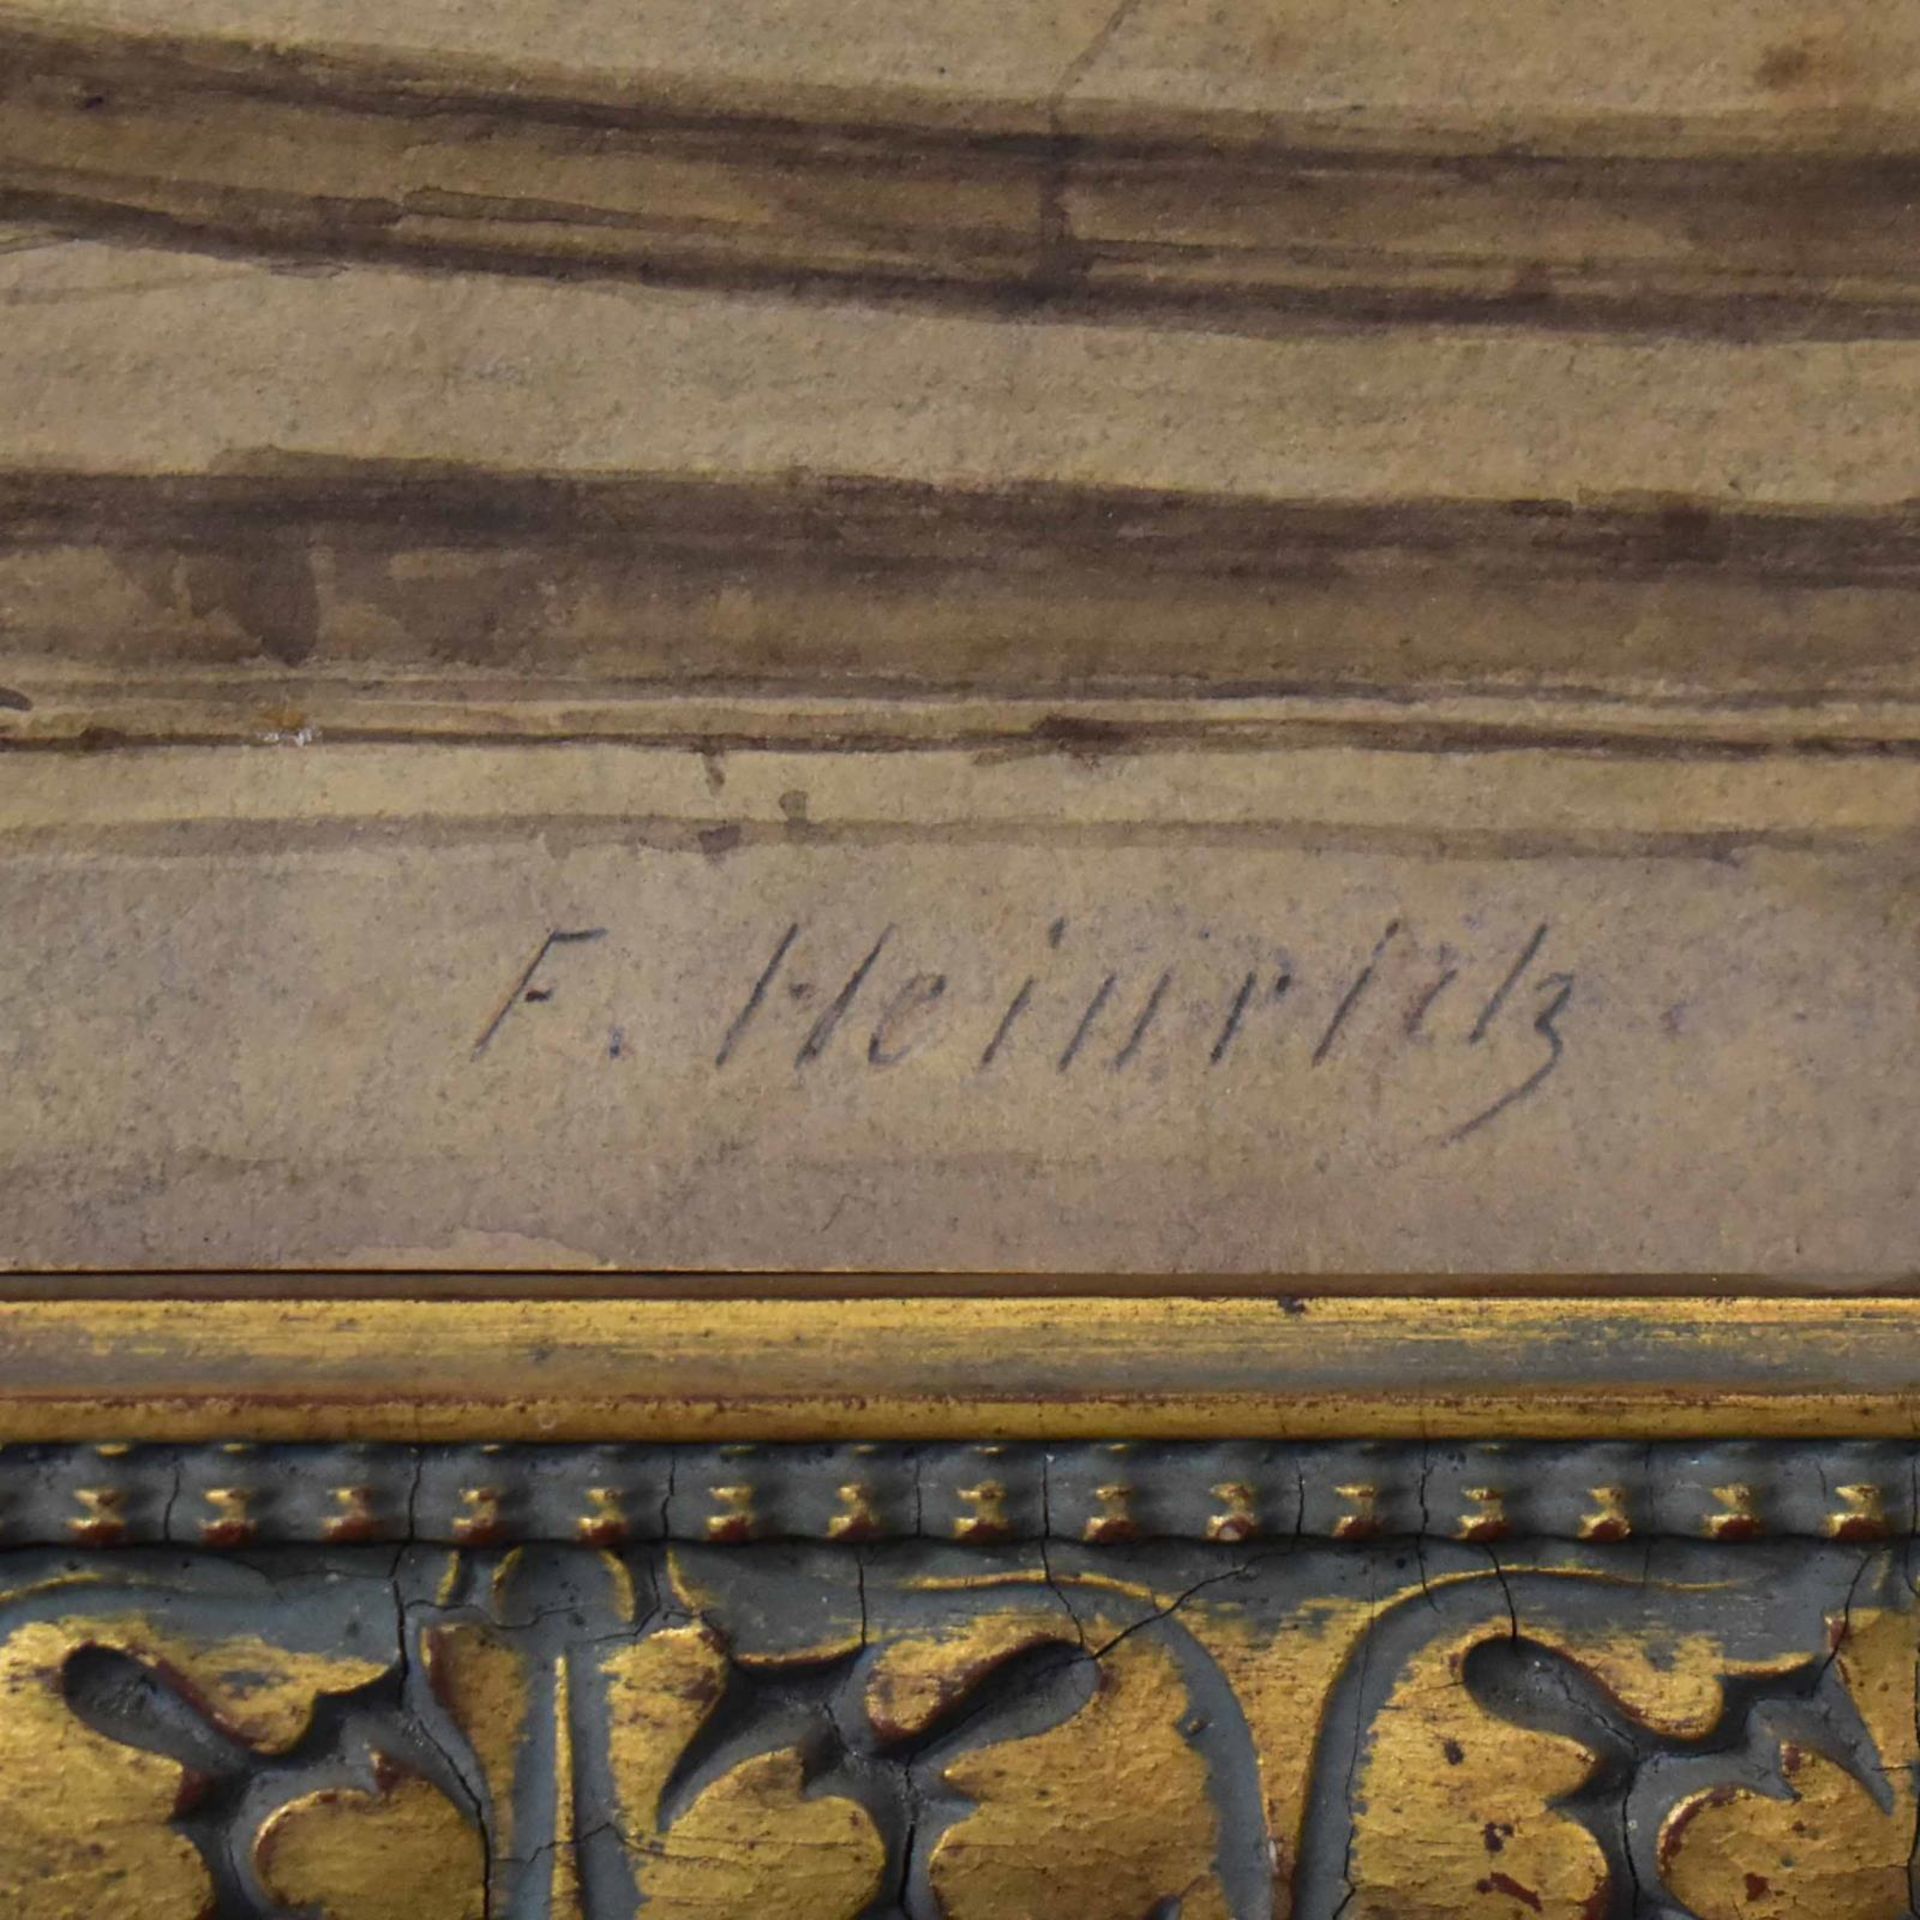 F. Heinrich